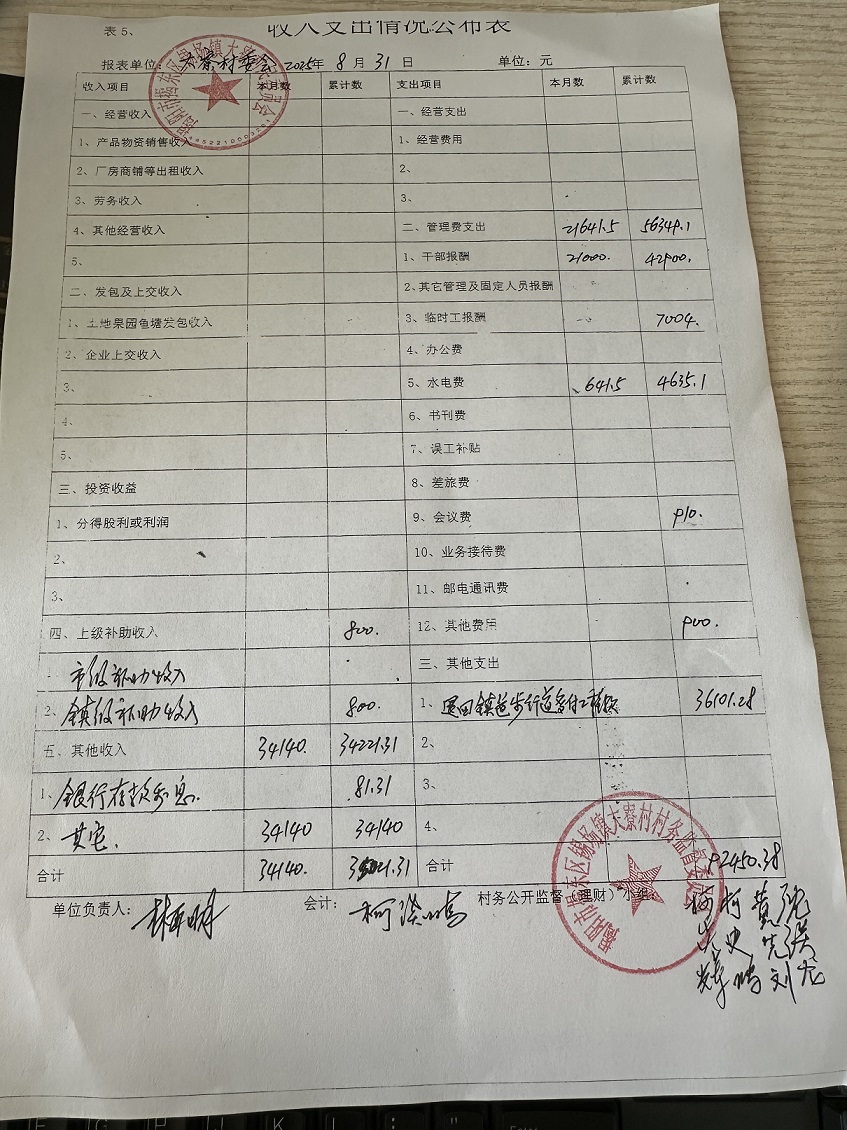 表 5、
收入支出情况公布表
报表单位: 大寮村委会 2025年 8 月 31 日 单位: 元
收入项目 本月数 累计数 支出项目 本月数 累计数
一、经营收入 一、经营支出
1、产品物资销售收入 1、经营费用
2、厂房商铺等出租收入 2、
3、劳务收入 3、
4、其他经营收入 二、管理费支出 21641.5 56349.1
5、 1、干部报酬 21000. 42900.
二、发包及上交收入 2、其它管理及固定人员报酬
1、土地果园鱼塘发包收入 3、临时工报酬 7004.
2、企业上交收入 4、办公费
3、 5、水电费 641.5 4635.1
4、 6、书刊费
5、 7、误工补贴
三、投资收益 8、差旅费
1、分得股利或利润 9、会议费 910.
2、 10、业务接待费
3、 11、邮电通讯费
四、上级补助收入 800. 12、其他费用 900.
市级补助收入 三、其他支出
2、镇级补助收入 800. 1、 36101.28
五、其他收入 34140. 34221.31 2、
1、银行存款利息. 81.31 3、
2、其它. 34140 34140 4、
合计 34140. 35021.31 合计 92450.38
单位负责人: 会计: 村务公开监督(理财)小组:
揭阳市揭东区锡场镇大寮村村务监督委员会